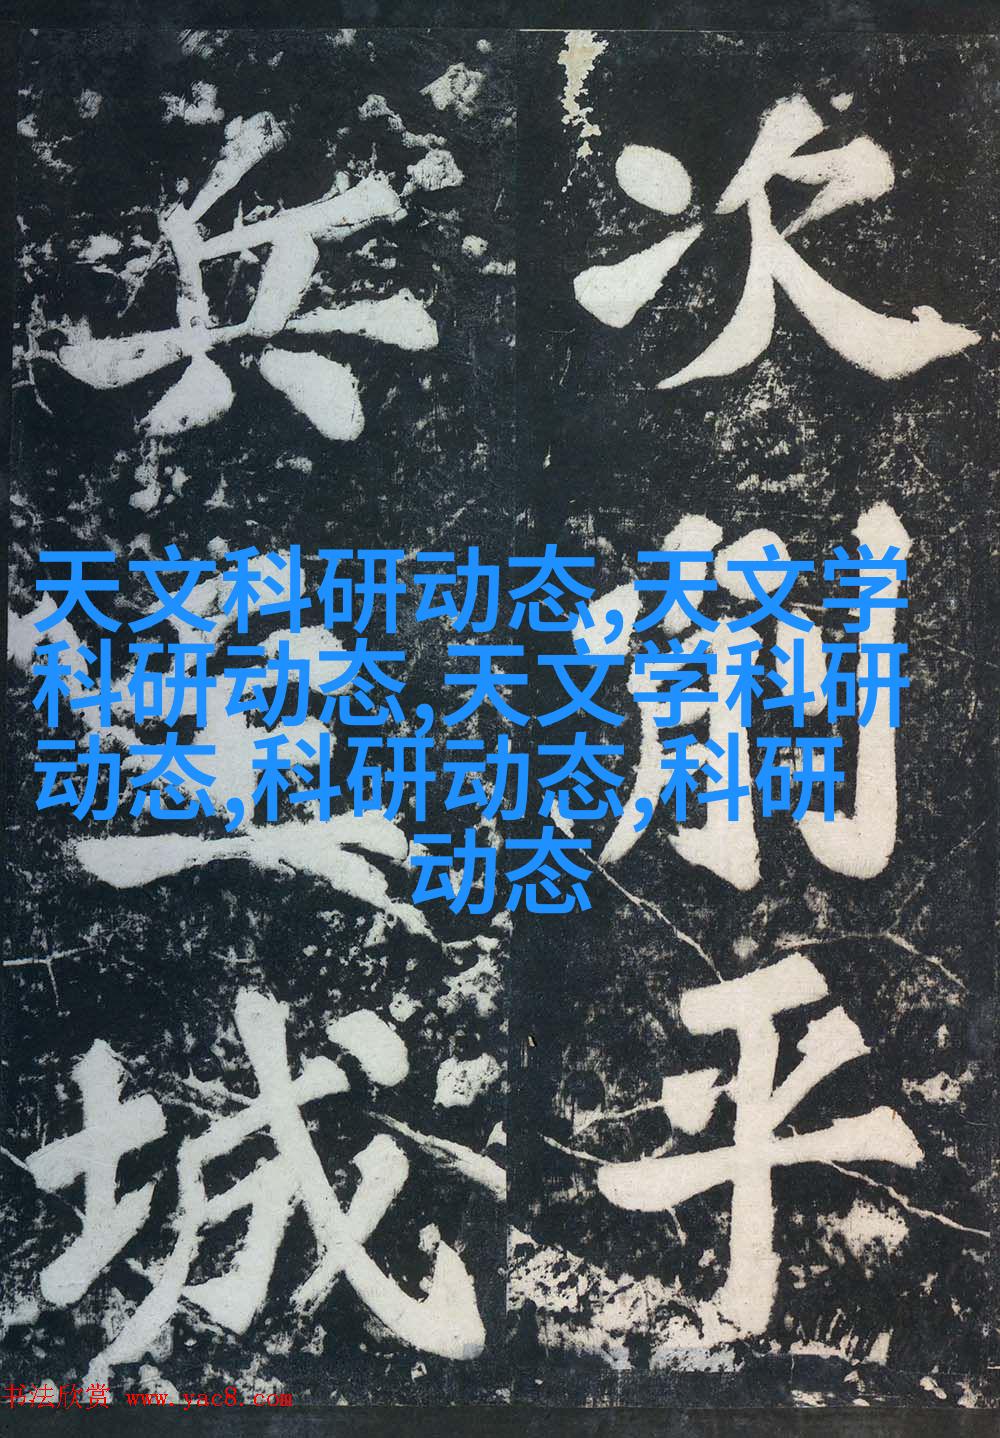 次
平
兵
城
天文科研动态,天文学
科研动态,天文学科研
动态,科研动态,科研
动态
书法欣赏 www.yac8.com